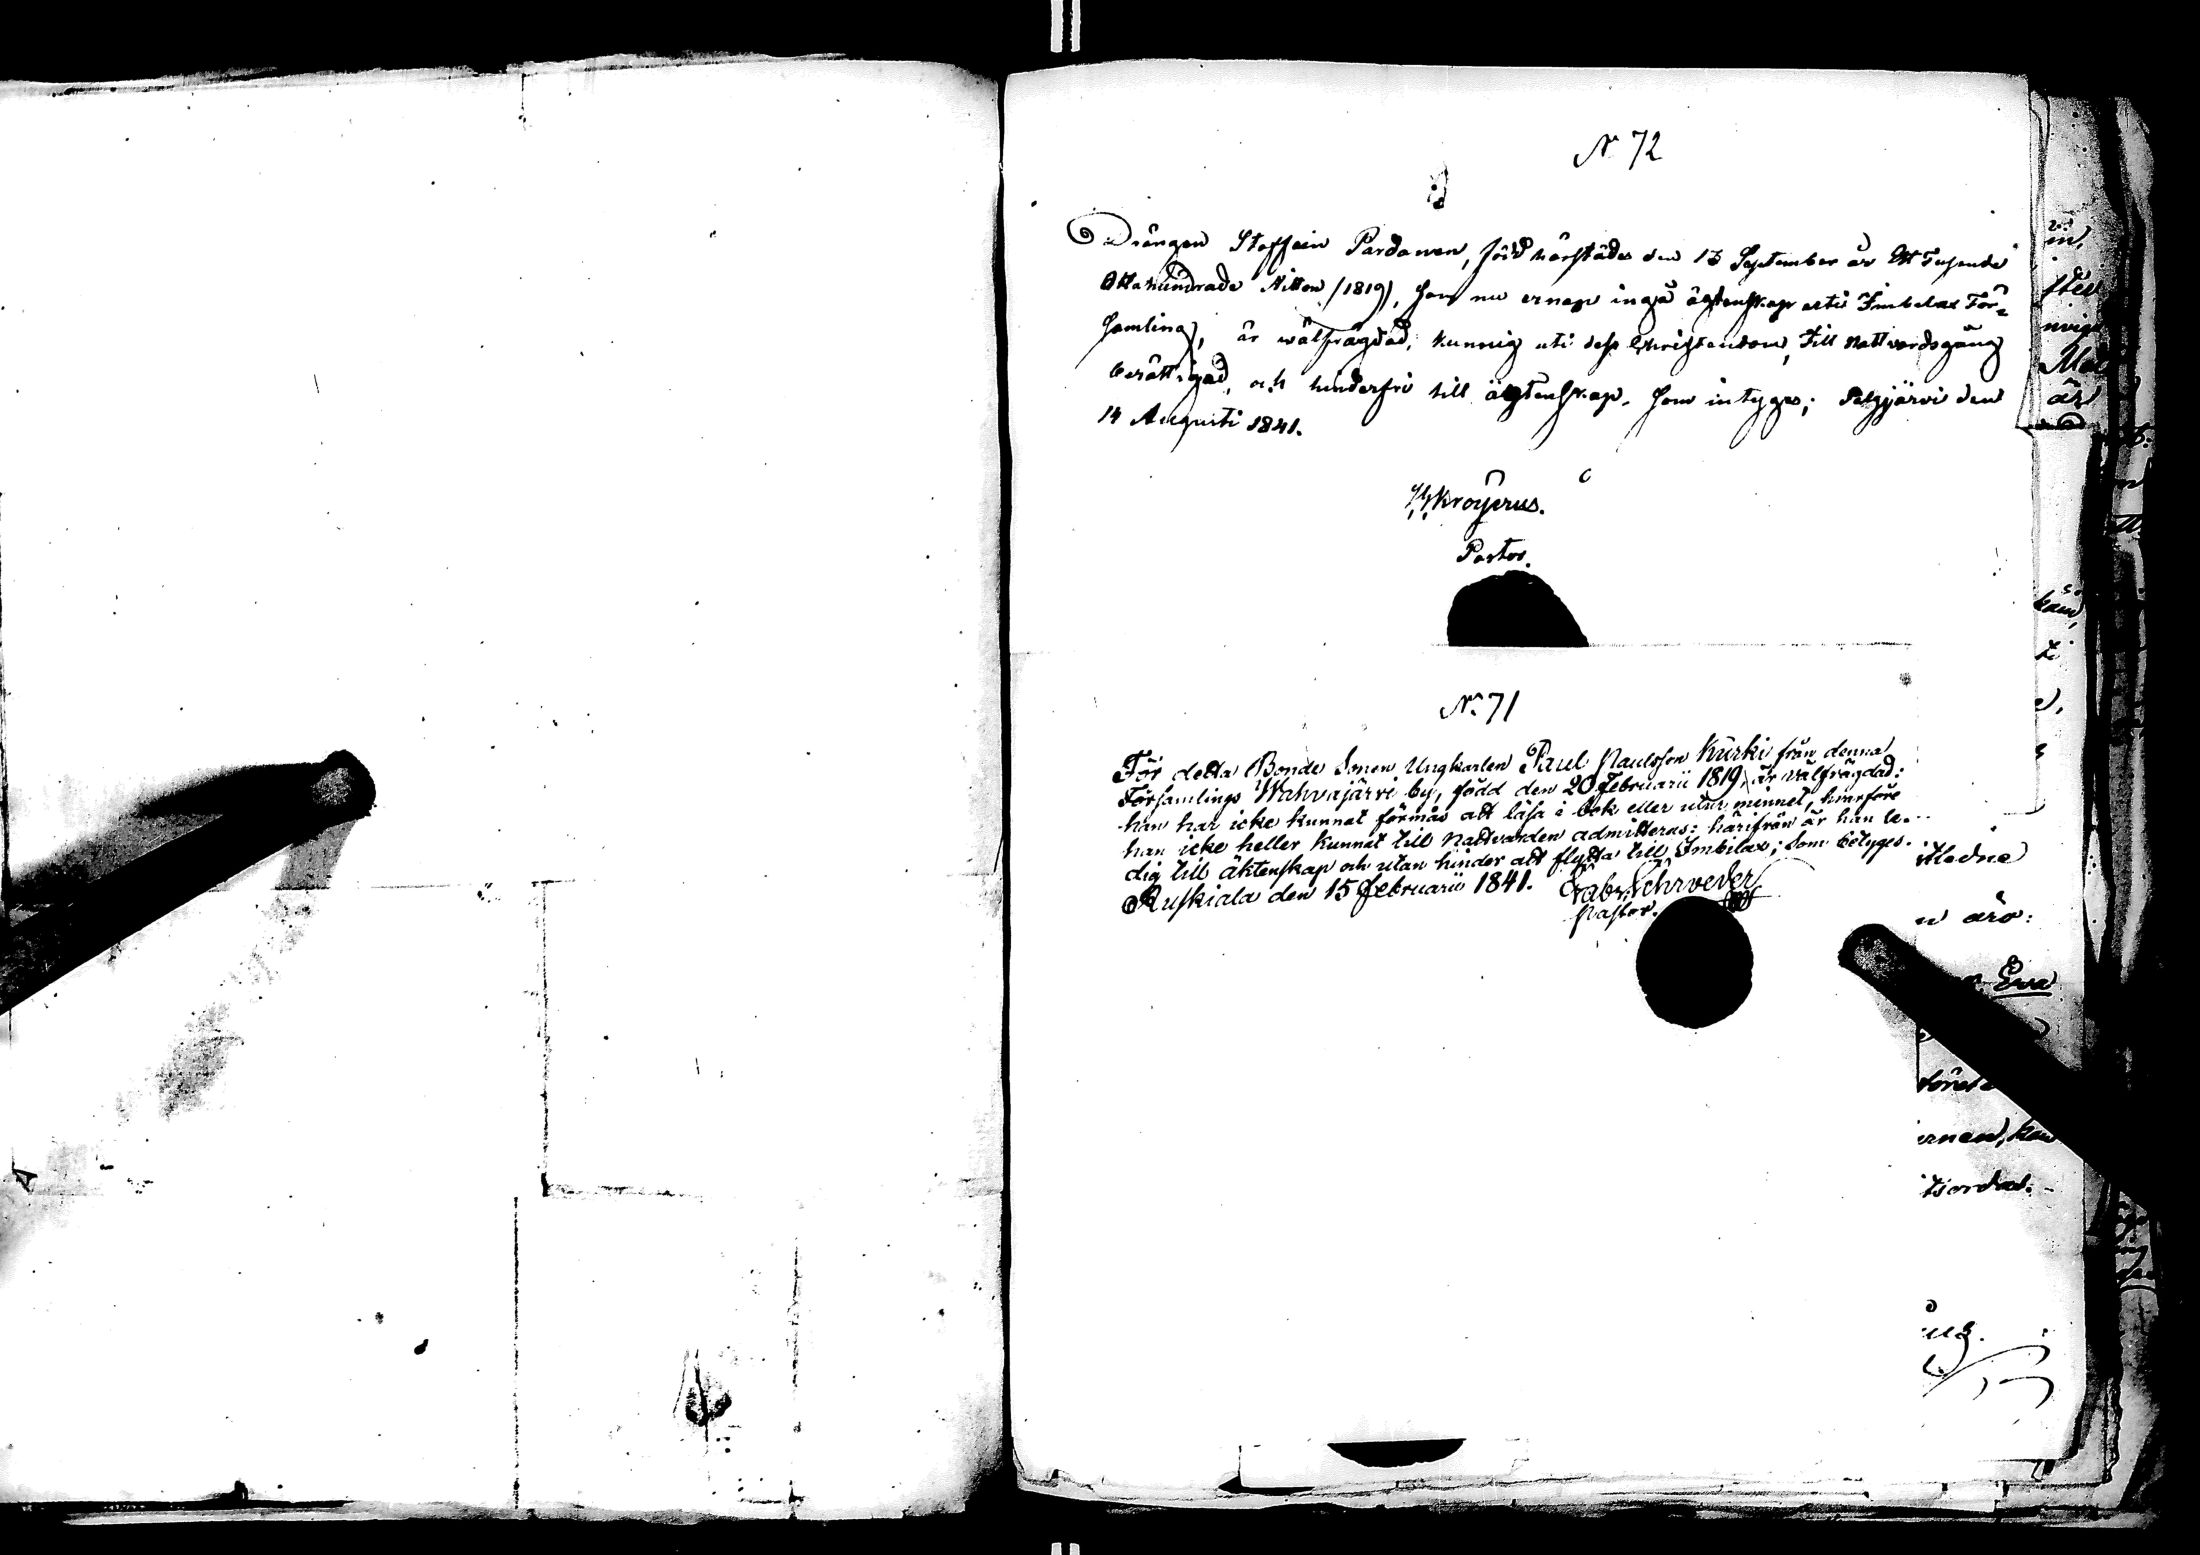 No 72
Drängen Staffan Pardanen, född härstädes den 13 September år Ett Tusende
Ottahundrade Nitton (1819), som nu ernar ingå ägtenskap uti Imbelax För-
samling, är wälfrägdad, kunnig uti dess Christendom, till Nattvardsgång
berättigad, och hinderfri till ägtenskap. Som intyges; Pelgjärvi den
14 Augusti 1841.
Kroÿerus.
Pastor.
No. 71
För detta Bonde Sonen Ungkarlen Paul Paulsson Kurki från denna
Församlings Wahvajärvi by, född den 20 Februarii 1819, är välfrägdad:
han har icke kunnat förmås att läsa i bok eller utur minnet, hvarföre
han icke heller kunnat till Nattvarden admitteras: härifrån är han le-
dig till äktenskap och utan hinder att flytta till Imbilax; som betyges.
Ruskiala den 15 Februarii 1841. Gabr. Schrveder
Pastor.
är
w äro:
Ewa